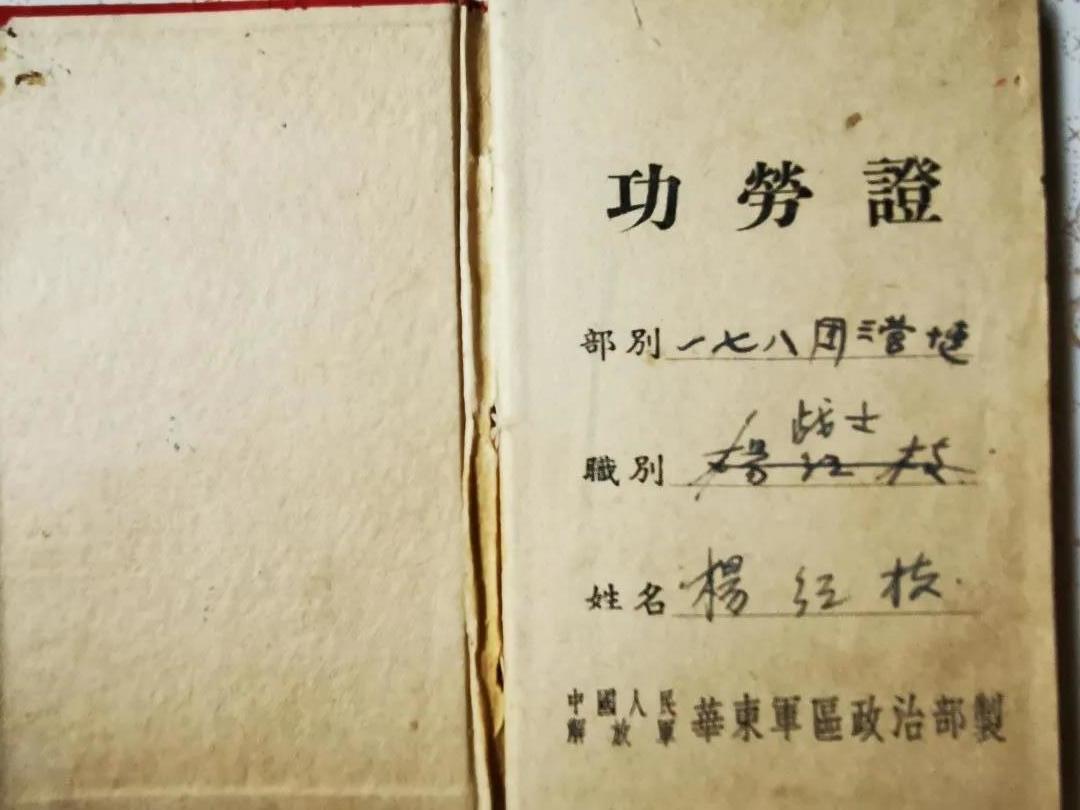 功勞證
部別 一七八团三营十連
战士
職別 楊红枝
姓名 楊红枝
中國人民
解放軍 華東軍區政治部製